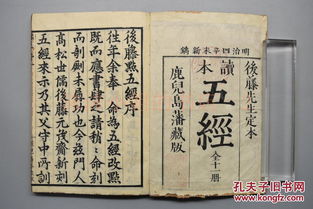 明治四辛未新鐫
後藤先生定本
讀本
五經 全十一冊
鹿兒島藩藏版
後藤點五經序
往年余奉 命為五經改點
既而應書肆之請稍々命刻
而剞劂未局功也今茲門人
高松世儒後藤元茂齋新刻
五經來示乃其父守中所訓